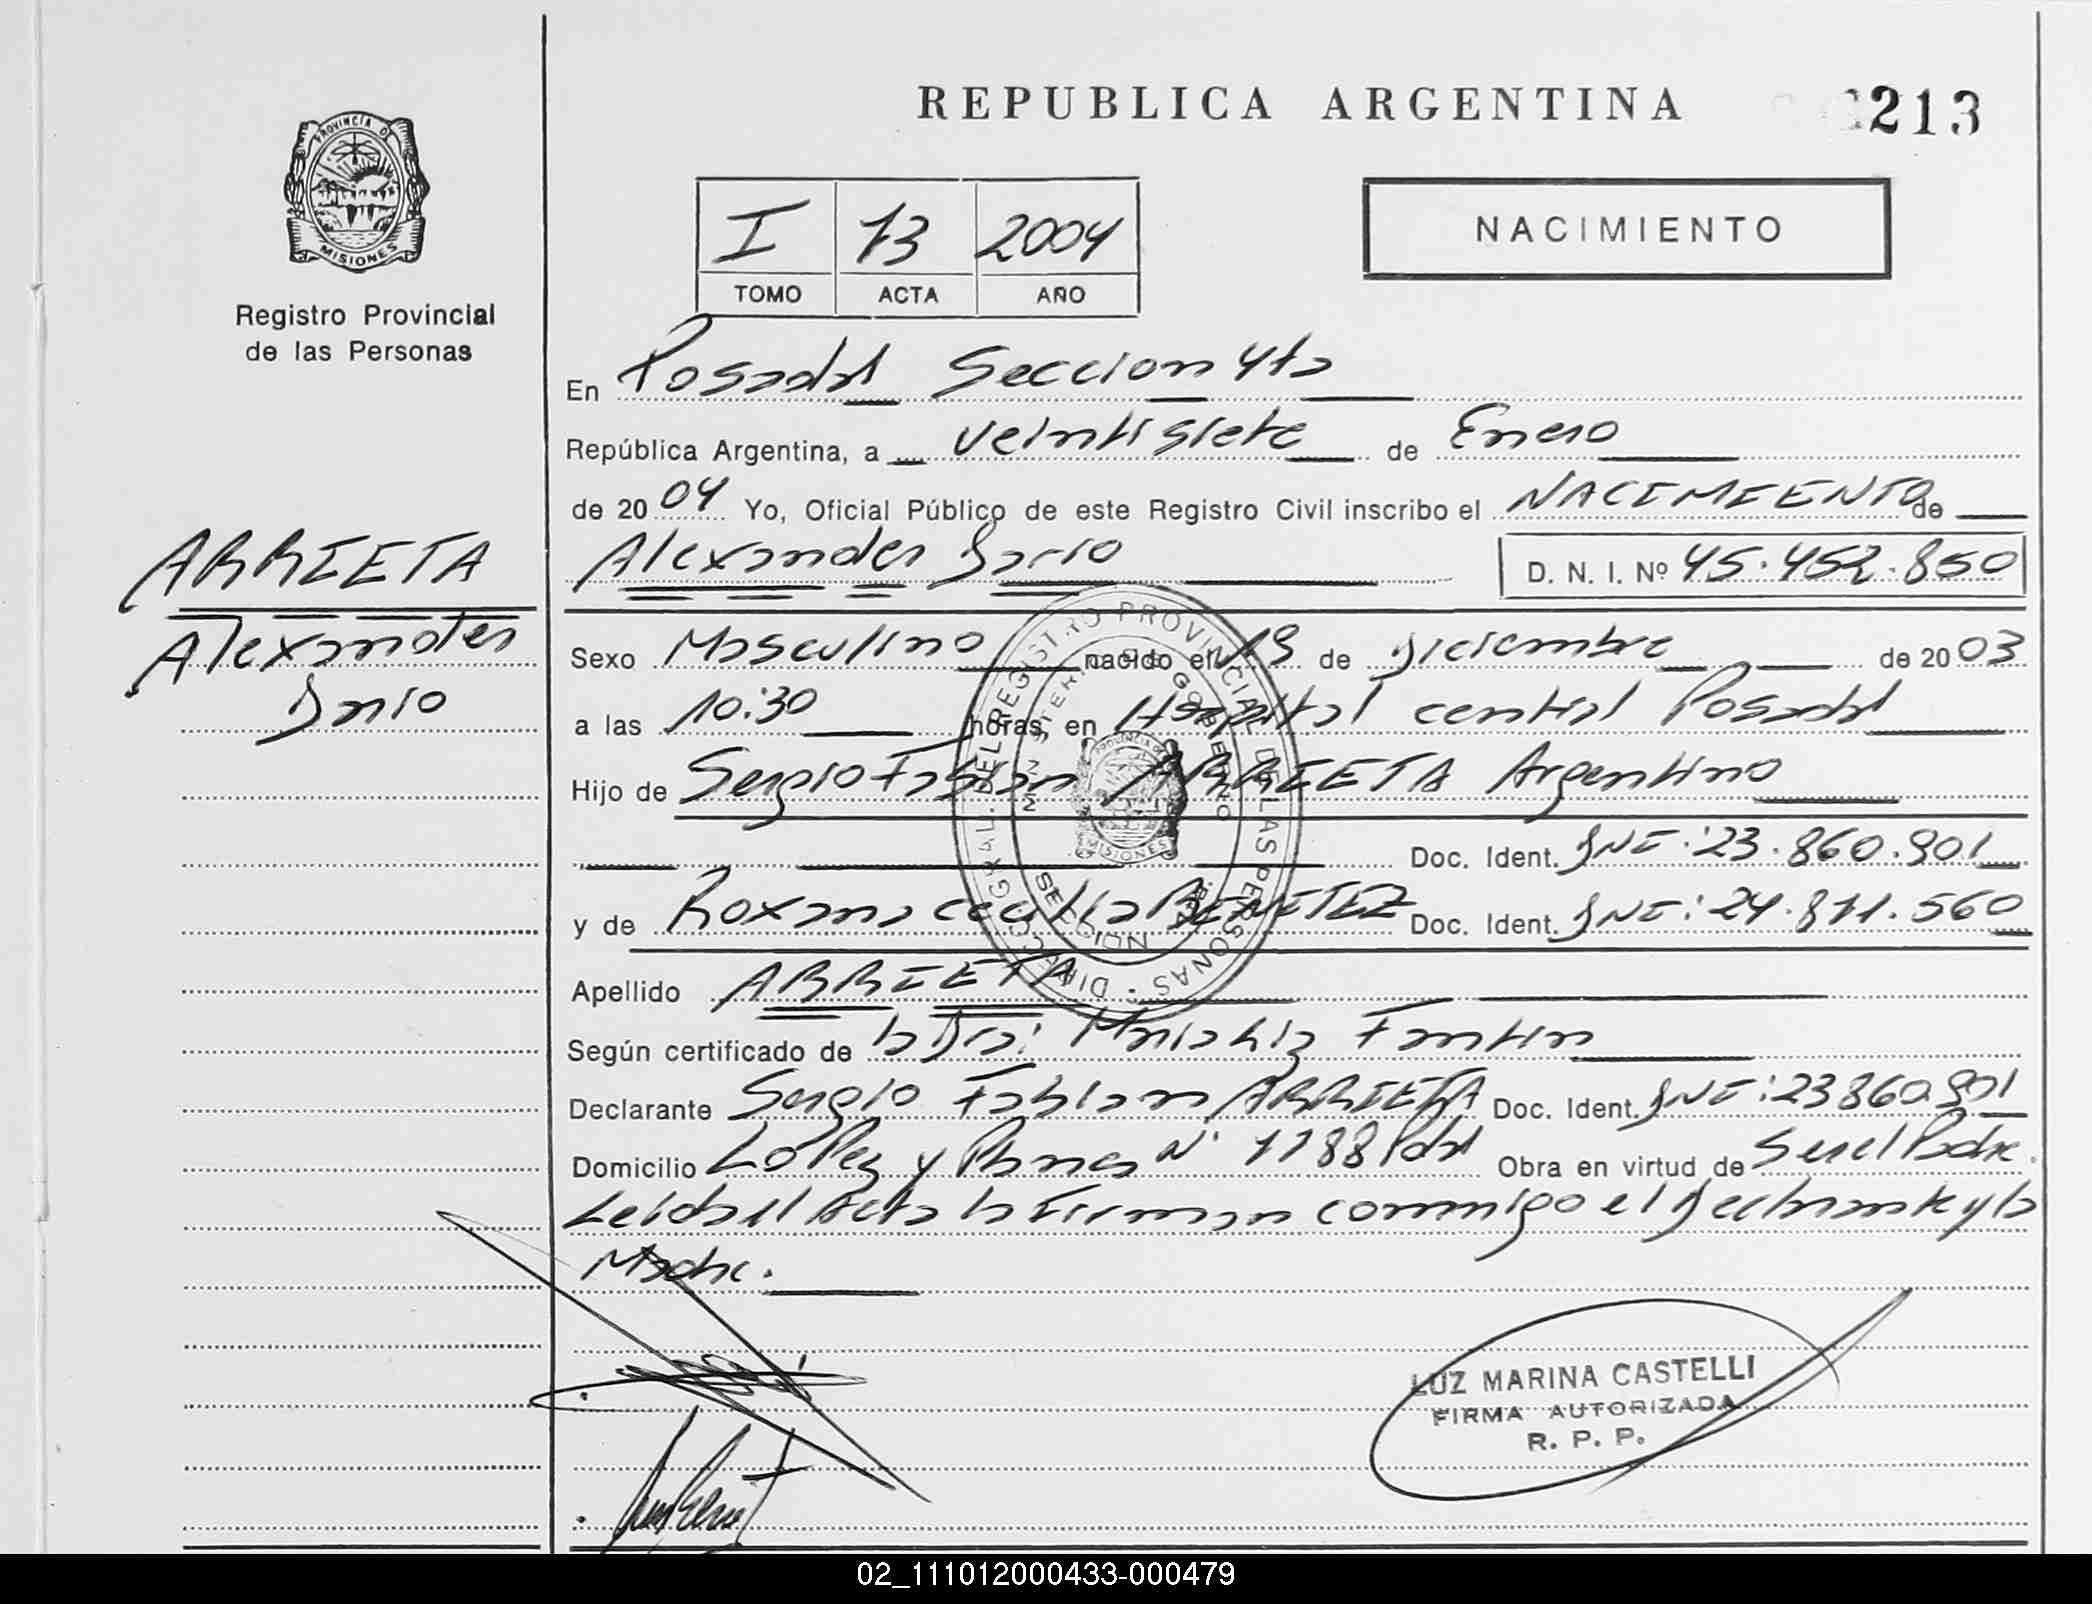 REPUBLICA ARGENTINA
213
PROVINCIA DE
MISIONES
Registro Provincial
de las Personas
I 13 2004
TOMO ACTA AÑO
NACIMIENTO
En Posadas Seccion 4ta
República Argentina, a veintisiete de Enero
de 2004 Yo, Oficial Público de este Registro Civil inscribo el NACIMIENTO de
Alexander Dario D. N. I. Nº 45.452.850
ARRIETA
Alexander
Dario
Sexo Masculino nacido el de Diciembre de 2003
a las 10:30 horas, en Hospital central Posadas
Hijo de Sergio Fabian ARRIETA Argentino
Doc. Ident. DNI: 23.860.901
y de Roxana cecilia BENITEZ Doc. Ident. DNI: 24.811.560
Apellido ARRIETA
Según certificado de la Dra: Maria Liz Fantin
Declarante Sergio Fabian ARRIETA Doc. Ident. DNI: 23860.901
Domicilio López y Planes Nº 1188 Pdas Obra en virtud de Ser el Padre.
Leida el Acta la Firman conmigo el Declarante y la
Madre.
DIRECC. GRAL. DEL REGISTRO PROVINCIAL DE LAS PERSONAS
MINISTERIO DE GOBIERNO
SECCION
PROVINCIA DE
MISIONES
LUZ MARINA CASTELLI
FIRMA AUTORIZADA
R. P. P.
02_111012000433-000479